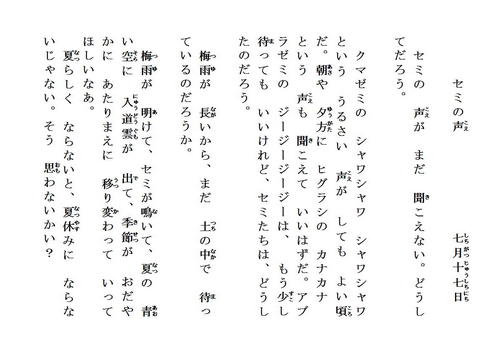 セミの声　七月十七日
セミの　声が　まだ　聞こえない。どうし
てだろう。
クマゼミの　シャワシャワ　シャワシャワ
という　うるさい　声が　しても　よい頃
だ。朝や　夕方に　ヒグラシの　カナカナ
という　声も　聞こえて　いいはずだ。アブ
ラゼミの　ジージージーは、　もう少し
待っても　いいけれど、セミたちは、どうし
たのだろう。
梅雨が　長いから、まだ　土の中で　待っ
ているのだろうか。
梅雨が　明けて、セミが鳴いて、夏の　青
い空に　入道雲が　出て、季節が　おだや
かに　あたりまえに　移り変わって　いって
ほしいなあ。
夏らしく　ならないと、夏休みに　ならな
いじゃない。そう　思わないかい？